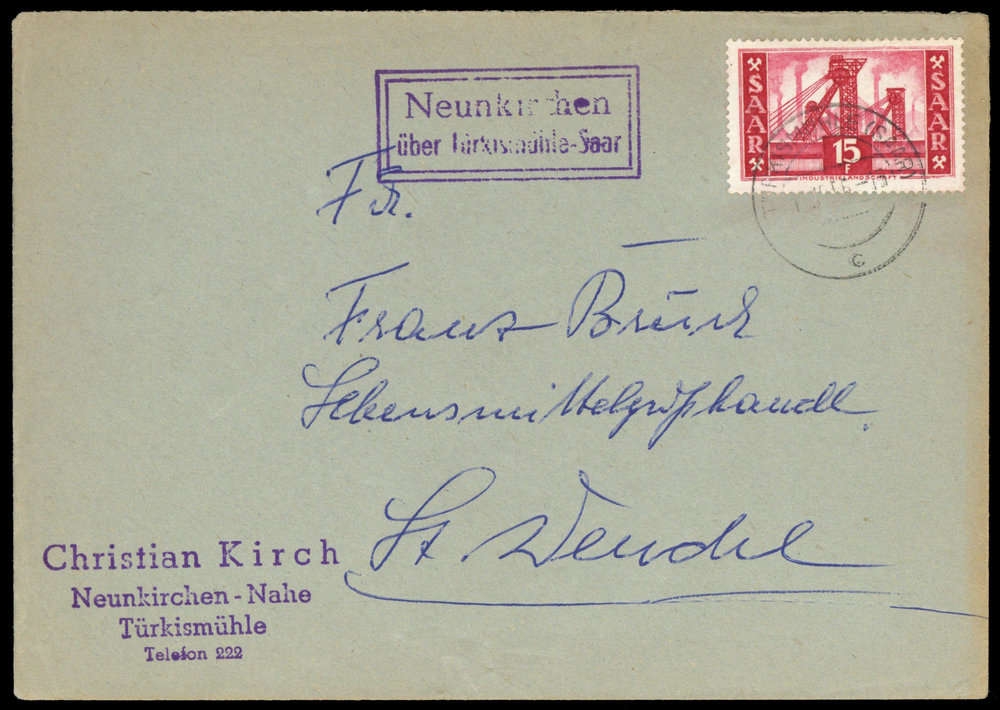 Neunkirchen
über Türkismühle-Saar
SAAR
SAAR
15
F
INDUSTRIELANDSCHAFT
c
Fa.
Franz Brück
Lebensmittelgroßhandl.
St. Wendel
Christian Kirch
Neunkirchen-Nahe
Türkismühle
Telefon 222